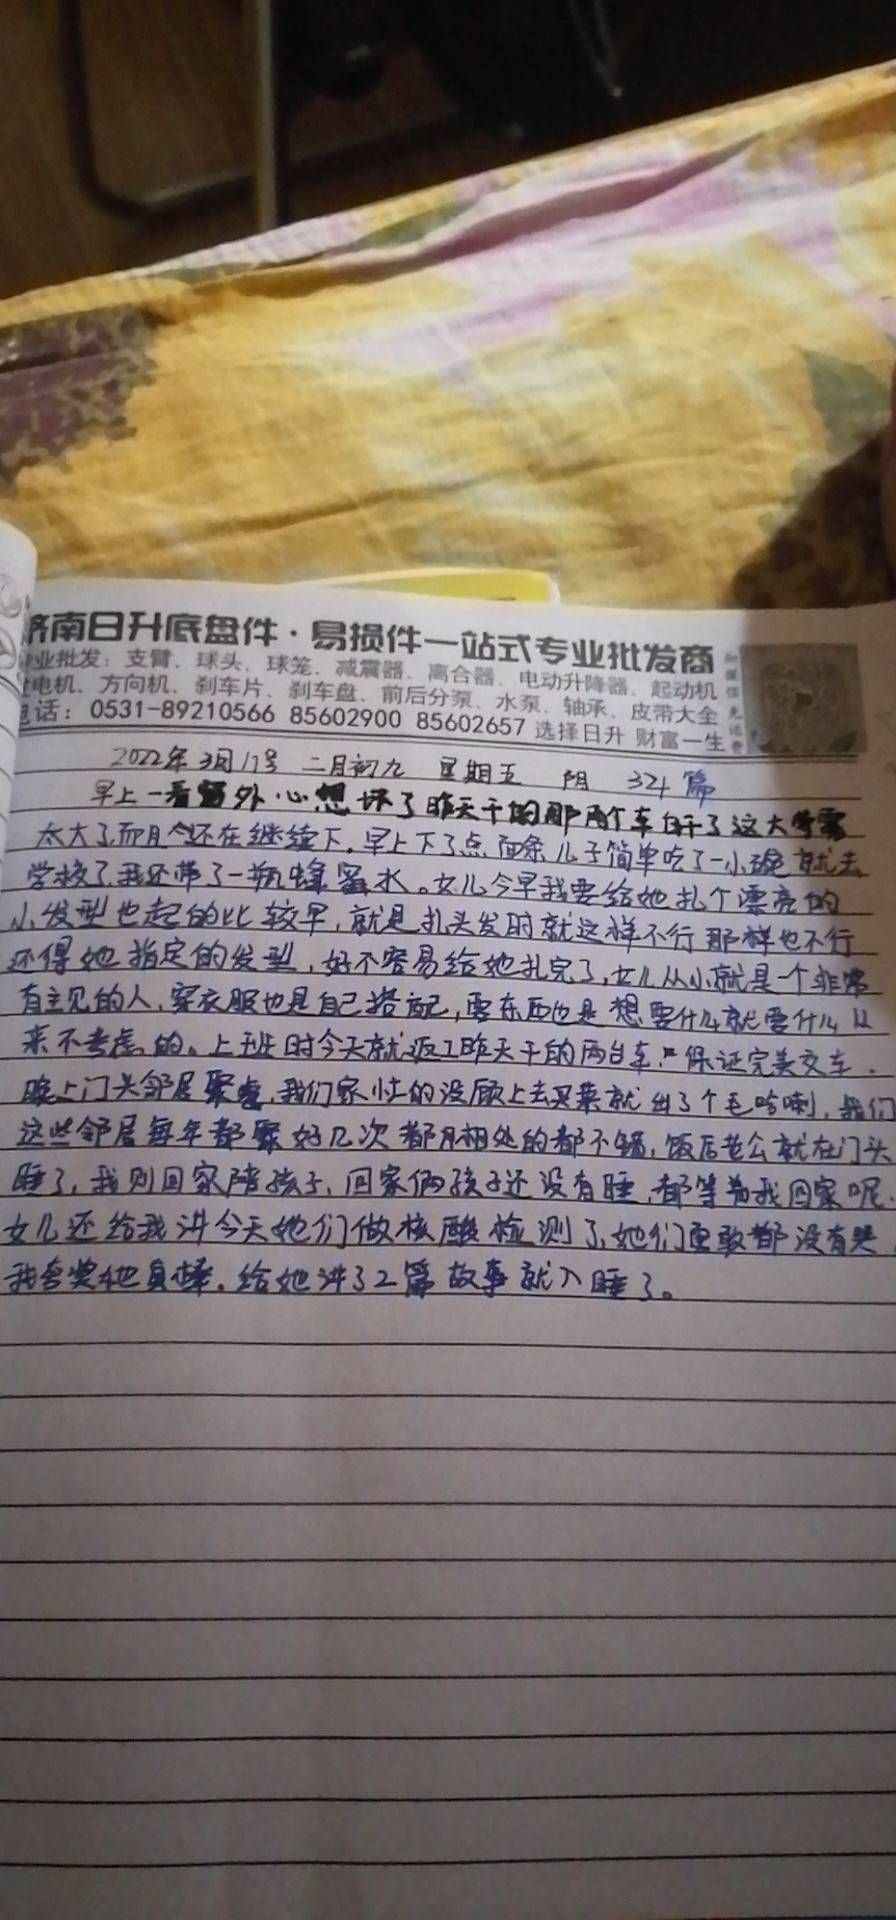 济南日升底盘件·易损件一站式专业批发商
专业批发：支臂、球头、球笼、减震器、离合器、电动升降器、起动机
发电机、方向机、刹车片、刹车盘、前后分泵、水泵、轴承、皮带大全
电话：0531-89210566 85602900 85602657 选择日升 财富一生
2022年3月11号 二月初九 星期五 阴 324篇
早上一看窗外心想坏了昨天干的那两个车白干了这大雪
太大了而且还在继续下。早上下了点面条儿子简单吃了一小碗就去
学校了，我还带了一瓶蜂蜜水。女儿今早我要给她扎个漂亮的
小发型也起的比较早，就是扎头发时就这样不行那样也不行
还得她指定的发型，好不容易给她扎完了，女儿从小就是一个非常
有主见的人，穿衣服也是自己搭配，要东西也是想要什么就要什么从
来不考虑的。上班时今天就返工昨天干的两台车，保证完美交车．
晚上门头邻居聚，我们家忙的没顾上去买菜就出了个毛哈喇，我们
这些邻居每年都聚好几次都相处的都不错，饭后老公就在门头
睡了，我则回家陪孩子，回家俩孩子还没有睡，都等着我回家呢．
女儿还给我讲今天她们做核酸检测了，她们勇敢都没有哭．
我夸奖她真棒。给她讲了2篇故事就入睡了。